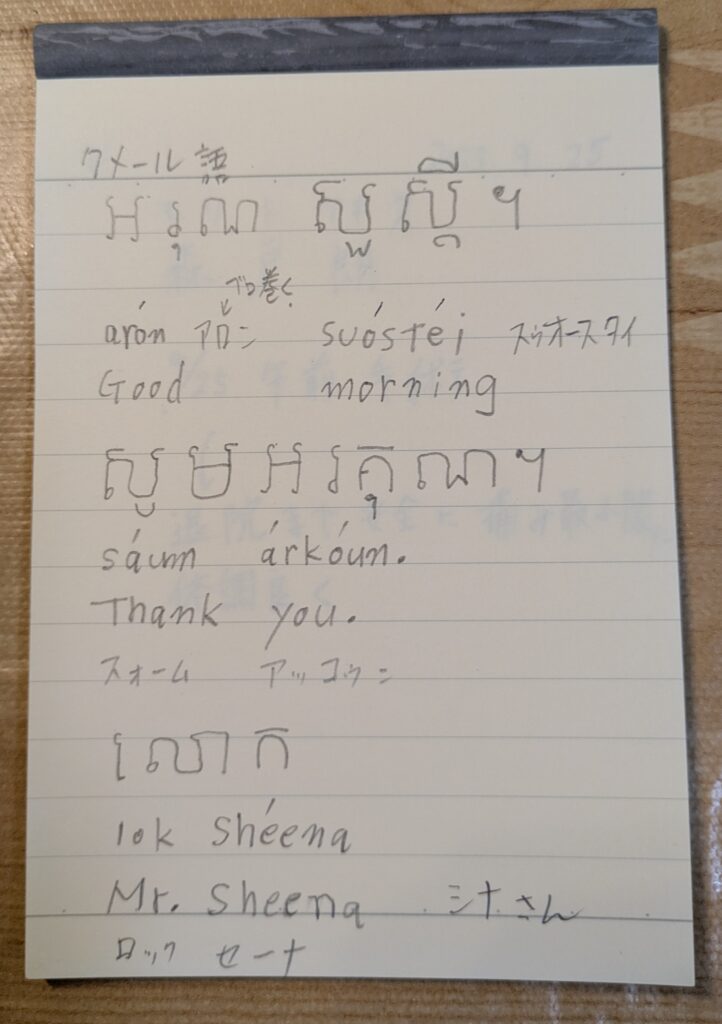 クメール語
អរុណ សួស្តី ។
ベロ巻く
arón アロン suóstéi スゥオースタイ
Good morning
សូមអរគុណ។
sáum árkóun.
Thank you.
スォーム アッコウン
លោក
lok Shéena
Mr. Sheena シナさん
ロック セーナ